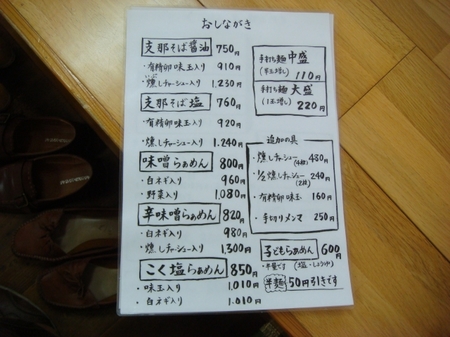 おしながき
支那そば醤油 750円
・有精卵味玉入り 910円
・燻しチャーシュー入り 1,230円
支那そば塩 760円
・有精卵味玉入り 920円
・燻しチャーシュー入り 1,240円
味噌らぁめん 800円
・白ネギ入り 960円
・野菜入り 1,080円
辛味噌らぁめん 820円
・白ネギ入り 980円
・燻しチャーシュー入り 1,300円
こく塩らぁめん 850円
・味玉入り 1,010円
・白ネギ入り 1,010円
手打ち麺 中盛
(半玉増し) 110円
手打ち麺 大盛
(1玉増し) 220円
追加の具
・燻しチャーシュー(4枚) 480円
・1/2燻しチャーシュー(2枚) 240円
・有精卵味玉 160円
・手切りメンマ 250円
子どもらぁめん 600円
・半量です (塩・しょうゆ)
半麺 50円引きです